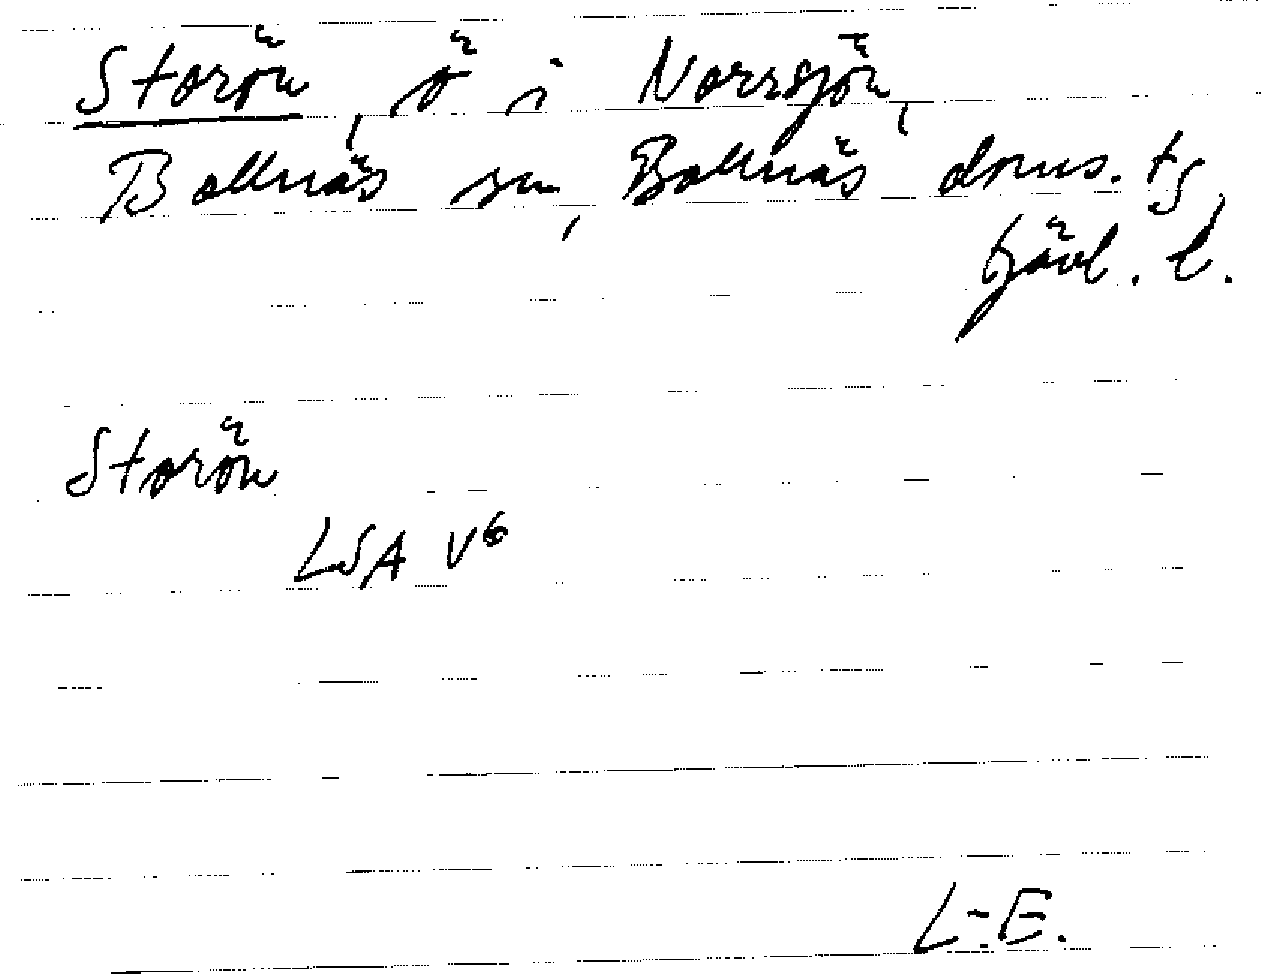 Storön, ö i Norrsjön,
Bollnäs sn, Bollnäs doms. tg,
Gävl. l.
Storön
LSA V6
L-E.